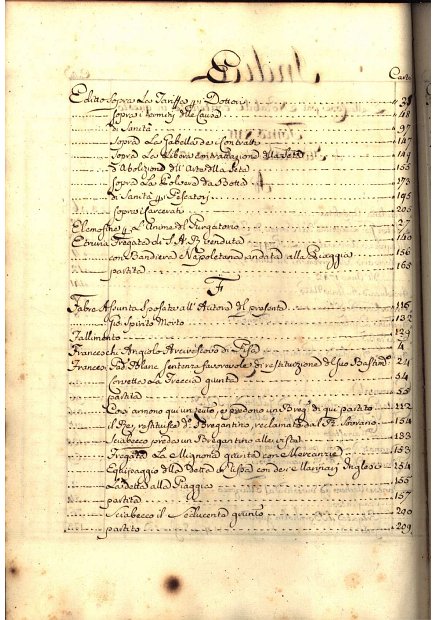 E
Carte
Editto Sopra La Tariffa p i Dottori 38
Sopra i termini delle Cause 48
di Sanità 97
Sopra La Gabella de Contratti 147
Sopra La libera contrattazione della Seta 149
d'Abolizione dell'Arte della Seta 155
Sopra La Polvere da Botta 173
di Sanità p i Pescatori 195
Sopra i Carcerati 205
Elemosine p L'Anime del Purgatorio 27
Etruria Fregata di S. A. R. venduta 140
con Bandiera Napoletana andata alla Piaggia 156
partita 165
F
Fabre Assunta Sposata all'Autore del presente 116
Spirito Morto 132
Fallimento 129
Franceschi Angiolo Arcivescovo di Pisa 4
Francesi Pad. Blanc sentenza favorevole di restituzione del suo Bastim. 24
Corvetta La Freccia giunta 54
partita 55
112
il Re, restituz. di Brigantino, reclamata dal R. Sovrano 154
Sciabecco preda un Brigantino Inglese 133
Fregata La Mignona giunta con Mercanzie 153
Equipaggio della Detta di Rissa con de Marinari Inglesi 154
La detta alla Piaggia 155
partita 157
Sciabecco il Seducente giunto 290
partito 209